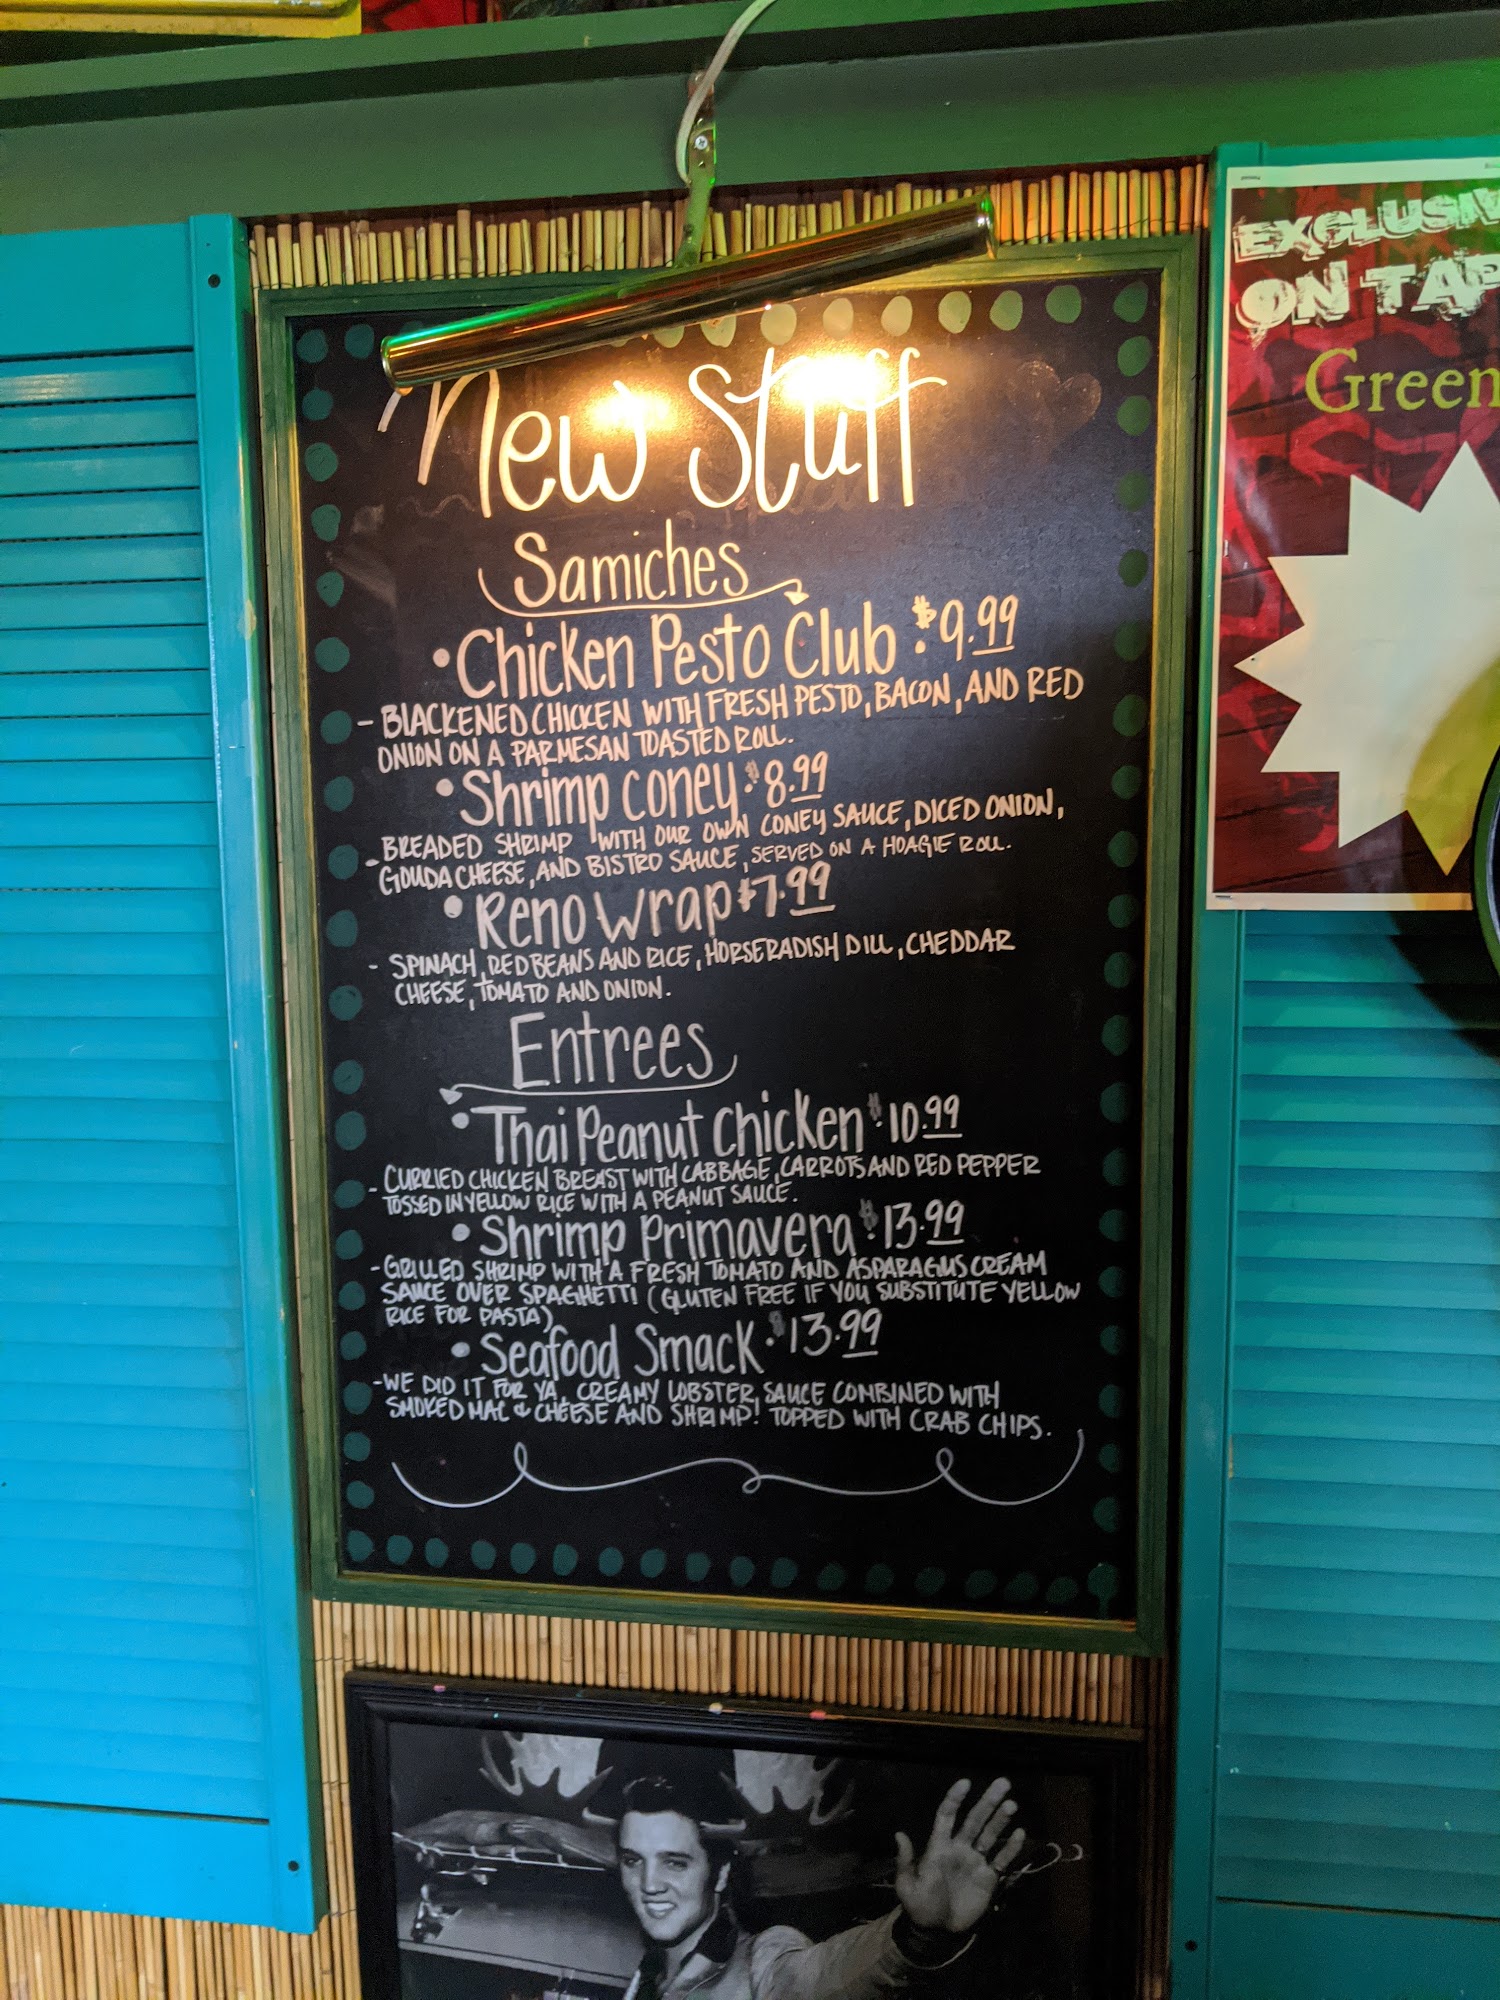 New Stuff
Samiches
• Chicken Pesto Club: $9.99
- BLACKENED CHICKEN WITH FRESH PESTO, BACON, AND RED
ONION ON A PARMESAN TOASTED ROLL.
• Shrimp Coney: $8.99
- BREADED SHRIMP WITH OUR OWN CONEY SAUCE, DICED ONION,
GOUDA CHEESE, AND BISTRO SAUCE, SERVED ON A HOAGIE ROLL.
• Reno Wrap $7.99
- SPINACH, RED BEANS AND RICE, HORSERADISH DILL, CHEDDAR
CHEESE, TOMATO AND ONION.
Entrees
• Thai Peanut Chicken: $10.99
- CURRIED CHICKEN BREAST WITH CABBAGE, CARROTS AND RED PEPPER
TOSSED IN YELLOW RICE WITH A PEANUT SAUCE.
• Shrimp Primavera: $13.99
- GRILLED SHRIMP WITH A FRESH TOMATO AND ASPARAGUS CREAM
SAUCE OVER SPAGHETTI (GLUTEN FREE IF YOU SUBSTITUTE YELLOW
RICE FOR PASTA)
• Seafood Smack: $13.99
- WE DID IT FOR YA, CREAMY LOBSTER SAUCE COMBINED WITH
SMOKED MAC & CHEESE AND SHRIMP! TOPPED WITH CRAB CHIPS.
EXCLUSIV
ON TAP
Green